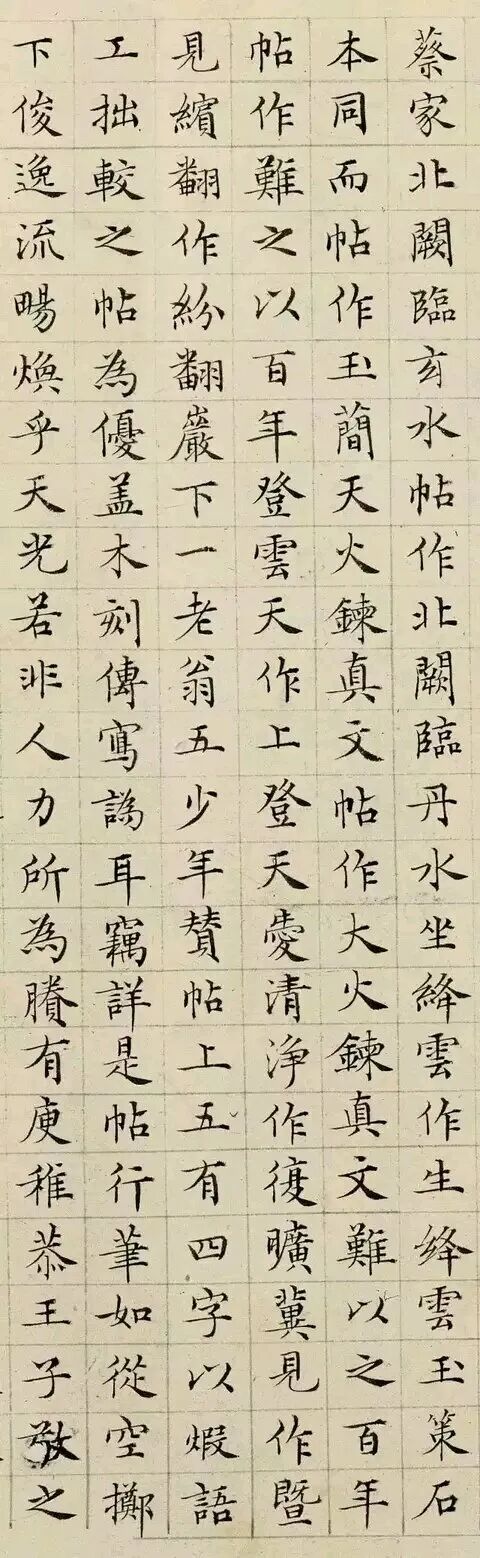 蔡家北闕臨玄水帖作北闕臨丹水坐絳雲作生絳雲玉策石
本同而帖作玉蕳天火鍊真文帖作大火鍊真文難以之百年
帖作難之以百年登雲天作上登天憂清浄作復曠冀見作暨
見繽翻作紛翻巖下一老翁五少年賛帖上五有四字以煆語
工拙較之帖為優盖木刻傳寫譌耳竊詳是帖行筆如從空擲
下俊逸流暢煥乎天光若非人力所為賸有庾稚恭王子敬之